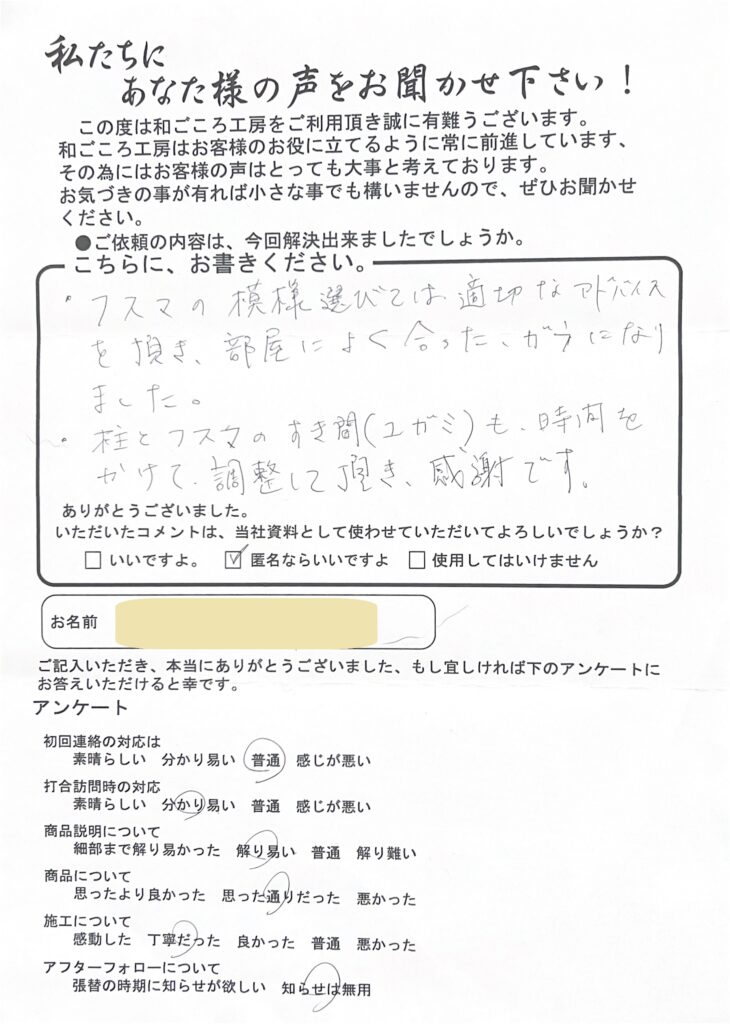 私たちに
あなた様の声をお聞かせ下さい！
この度は和ごころ工房をご利用頂き誠に有難うございます。
和ごころ工房はお客様のお役に立てるように常に前進しています、
その為にはお客様の声はとっても大事と考えております。
お気づきの事が有れば小さな事でも構いませんので、ぜひお聞かせ
ください。
●ご依頼の内容は、今回解決出来ましたでしょうか。
こちらに、お書きください。
・フスマの模様選びでは適切なアドバイス
を頂き、部屋によく合った、ガラになり
ました。
・柱とフスマのすき間(ユガミ)も、時間を
かけて、調整して頂き、感謝です。
ありがとうございました。
いただいたコメントは、当社資料として使わせていただいてよろしいでしょうか？
□いいですよ。 ☑匿名ならいいですよ □使用してはいけません
お名前
ご記入いただき、本当にありがとうございました、もし宜しければ下のアンケートに
お答えいただけると幸です。
アンケート
初回連絡の対応は
素晴らしい 分かり易い 普通 感じが悪い
打合訪問時の対応
素晴らしい 分かり易い 普通 感じが悪い
商品説明について
細部まで解り易かった 解り易い 普通 解り難い
商品について
思ったより良かった 思った通りだった 悪かった
施工について
感動した 丁寧だった 良かった 普通 悪かった
アフターフォローについて
張替の時期に知らせが欲しい 知らせは無用